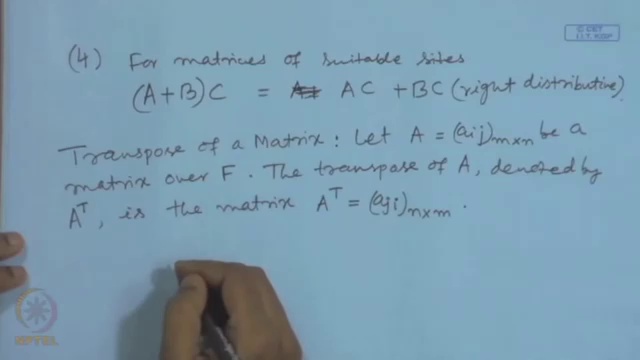 © CET
I.I.T. KGP
(4) For matrices of suitable sites
(A+B)C = AC + BC (right distributive).
Transpose of a Matrix : Let A = (aij)m×n be a
matrix over F. The transpose of A, denoted by
Aᵀ, is the matrix Aᵀ = (aji)n×m .
NPTEL